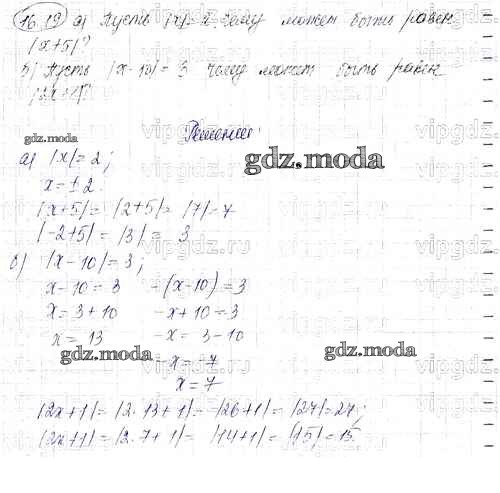 16.19 а) Пусть |x|=2. Чему может быть равен
|x+5|?
б) Пусть |x-10|= 3 чему может быть равен
|2x+1|?
Решение
gdz.moda
а) |x|=2;
gdz.moda
x=±2.
|x+5|= |2+5|= |7|=7
|-2+5| = |3| = 3
vipgdz.ru
б) |x-10|=3;
x-10= 3 -(x-10)=3
x= 3+10 -x+10=3
x= 13 -x= 3-10
gdz.moda gdz.moda
-x=-7
x=7
|2x+1|= |2·13+1|= |26+1|= |27|=27;
|2x+1|= |2·7+1|= |14+1|= |15|=15.